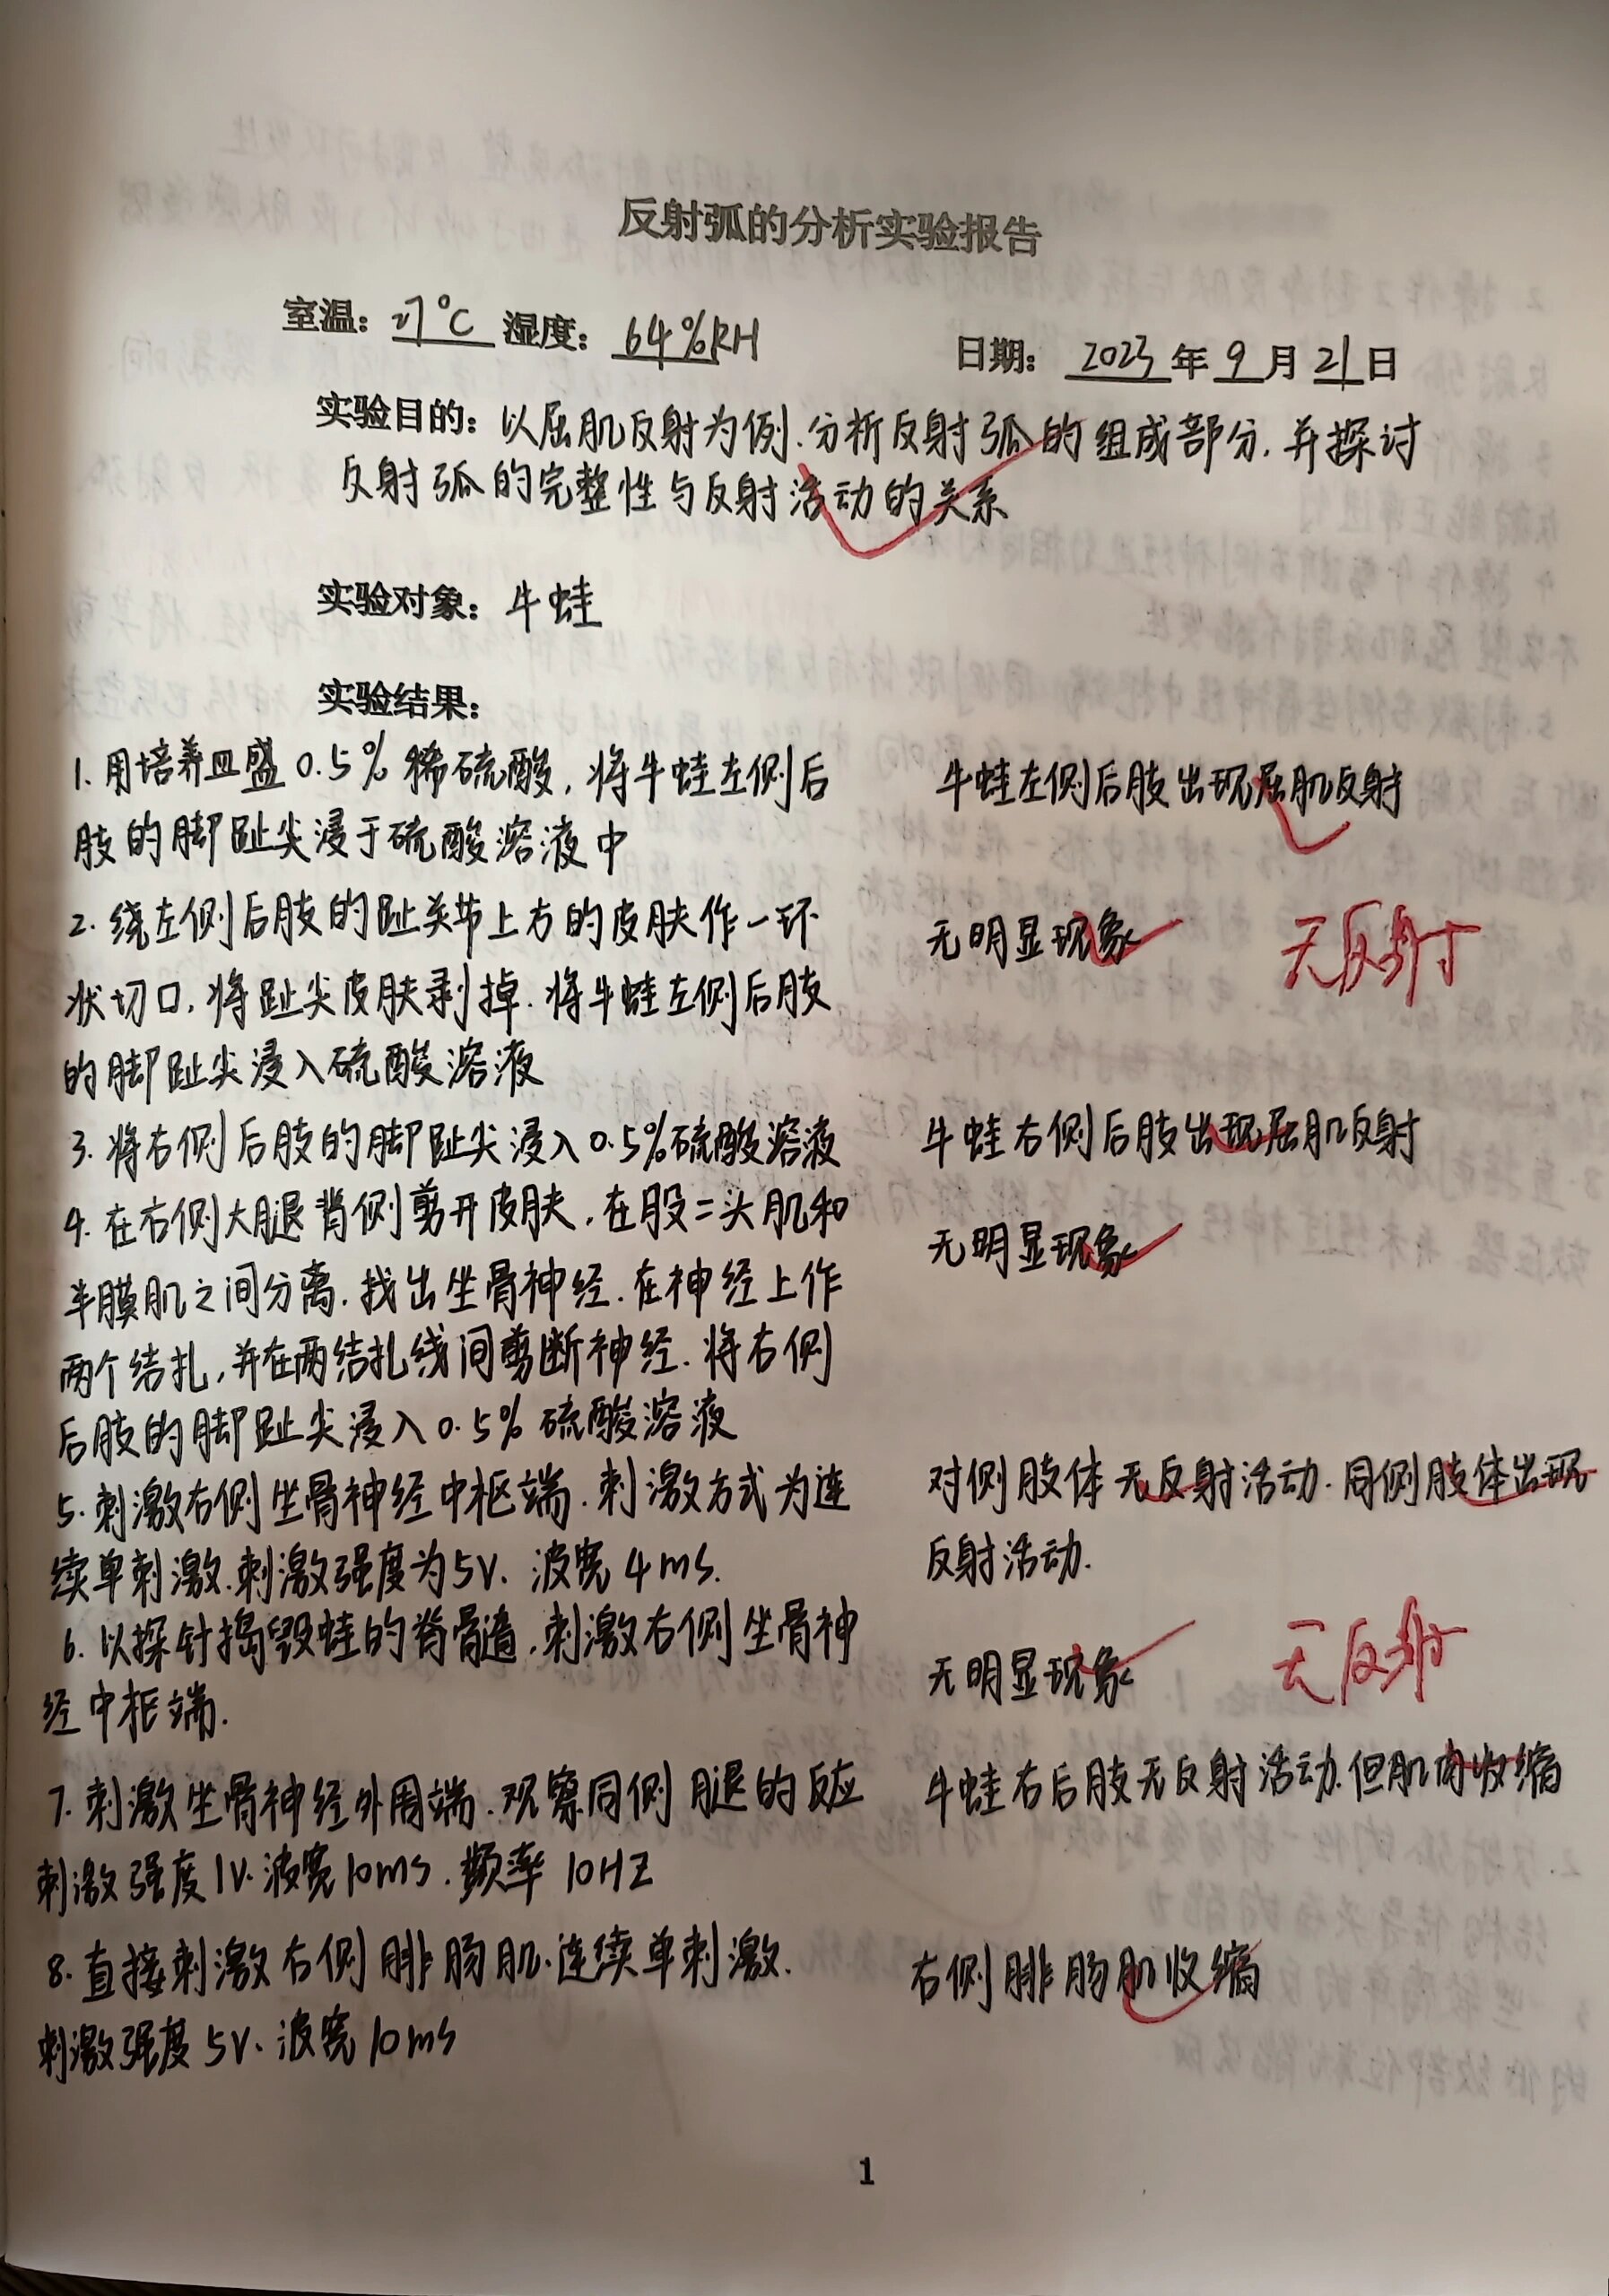 反射弧的分析实验报告
室温：27°C 湿度：64%RH
日期：2023年9月21日
实验目的：以屈肌反射为例.分析反射弧的组成部分.并探讨
反射弧的完整性与反射活动的关系
实验对象：牛蛙
实验结果：
1. 用培养皿盛0.5%稀硫酸，将牛蛙左侧后
肢的脚趾尖浸于硫酸溶液中
牛蛙左侧后肢出现屈肌反射
2. 绕左侧后肢的趾关节上方的皮肤作一环
状切口，将趾尖皮肤剥掉.将牛蛙左侧后肢
的脚趾尖浸入硫酸溶液
无明显现象
无反射
3. 将右侧后肢的脚趾尖浸入0.5%硫酸溶液
牛蛙右侧后肢出现屈肌反射
4. 在右侧大腿背侧剪开皮肤，在股二头肌和
半膜肌之间分离.找出坐骨神经.在神经上作
两个结扎，并在两结扎线间剪断神经.将右侧
后肢的脚趾尖浸入0.5%硫酸溶液
无明显现象
5. 刺激右侧坐骨神经中枢端.刺激方式为连
续单刺激.刺激强度为5V、波宽4ms.
对侧肢体无反射活动.同侧肢体出现
反射活动.
6. 以探针捣毁蛙的脊髓.刺激右侧坐骨神
经中枢端.
无明显现象
无反射
7. 刺激坐骨神经外周端.观察同侧腿的反应
刺激强度1V.波宽10ms.频率10HZ
牛蛙右后肢无反射活动.但肌肉收缩
8. 直接刺激右侧腓肠肌.连续单刺激.
刺激强度5V、波宽10ms
右侧腓肠肌收缩
1